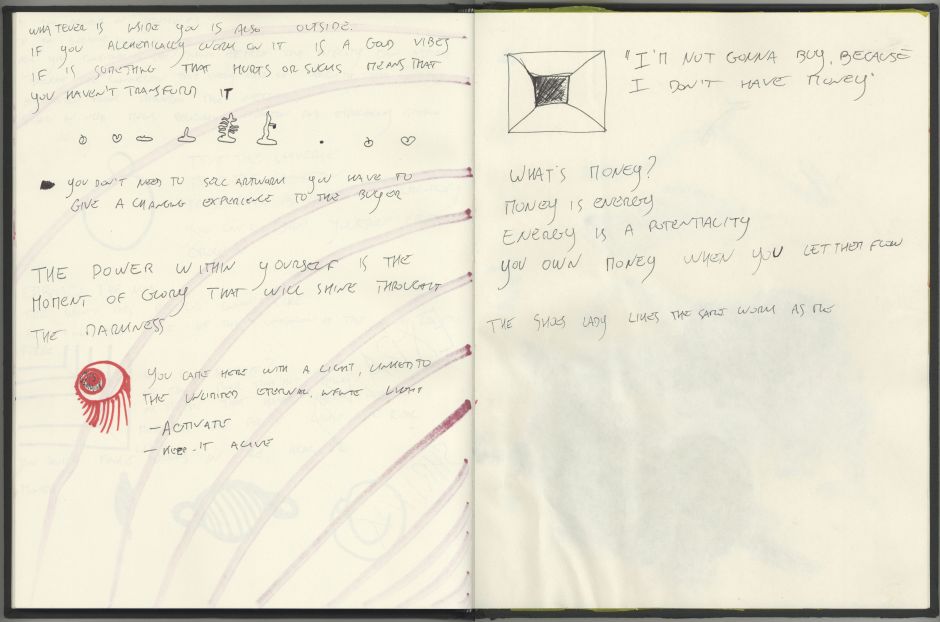 WHATEVER IS INSIDE YOU IS ALSO OUTSIDE.
IF YOU ALCHEMICALLY WORK ON IT IS A GOOD VIBES
IF IS SOMETHING THAT HURTS OR SUCKS MEANS THAT
YOU HAVEN'T TRANSFORM IT
YOU DON'T NEED TO SELL ARTWORK YOU HAVE TO
GIVE A CHANGING EXPERIENCE TO THE BUYER
THE POWER WITHIN YOURSELF IS THE
MOMENT OF GLORY THAT WILL SHINE THROUGHT
THE DARKNESS
YOU CAME HERE WITH A LIGHT, LINKED TO
THE UNLIMITED ETERNAL, INFINITE LIGHT
- ACTIVATE
- KEEP IT ALIVE
"I'M NOT GONNA BUY, BECAUSE
I DON'T HAVE MONEY"
WHAT'S MONEY?
MONEY IS ENERGY
ENERGY IS A POTENTIALITY
YOU OWN MONEY WHEN YOU LET THEM FLOW
THE SHOES LADY LIKES THE SAME WORK AS ME